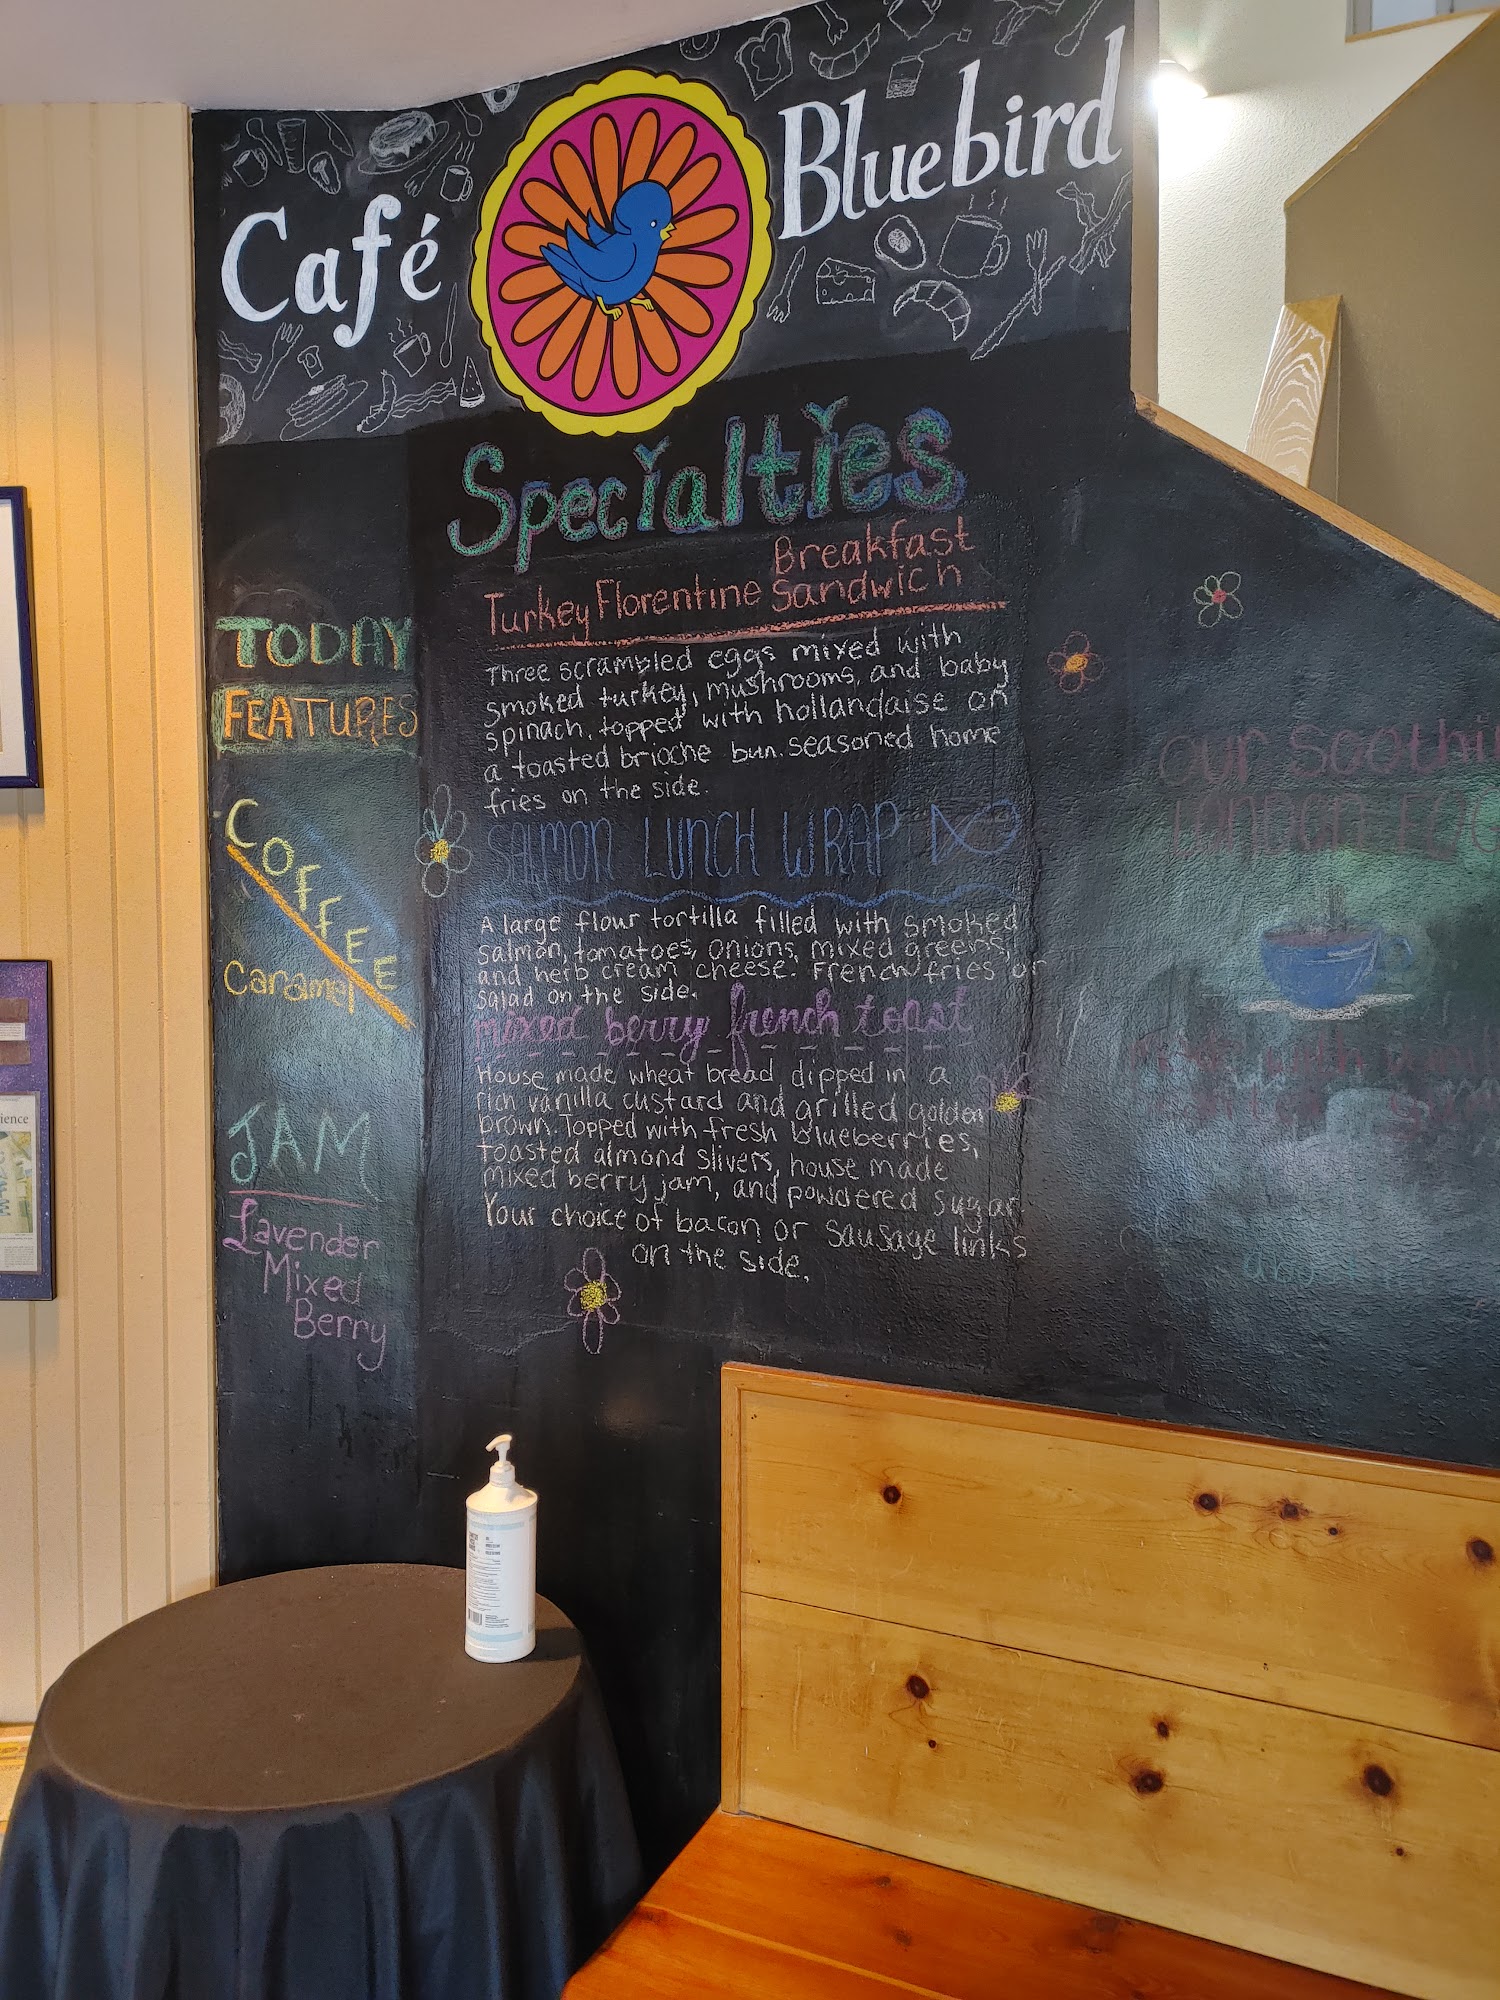 Café Bluebird
Specialties
Turkey Florentine Breakfast Sandwich
Three scrambled eggs mixed with
smoked turkey, mushrooms, and baby
spinach, topped with hollandaise on
a toasted brioche bun. seasoned home
fries on the side.
SALMON LUNCH WRAP
A large flour tortilla filled with smoked
salmon, tomatoes, onions, mixed greens,
and herb cream cheese. French fries or
salad on the side.
mixed berry french toast
House made wheat bread dipped in a
rich vanilla custard and grilled golden
brown. Topped with fresh blueberries,
toasted almond slivers, house made
mixed berry jam, and powdered sugar.
Your choice of bacon or sausage links
on the side.
TODAY
FEATURES
COFFEE
Caramel
JAM
Lavender
Mixed
Berry
Our Soothi
LONDON FOG
with
ience